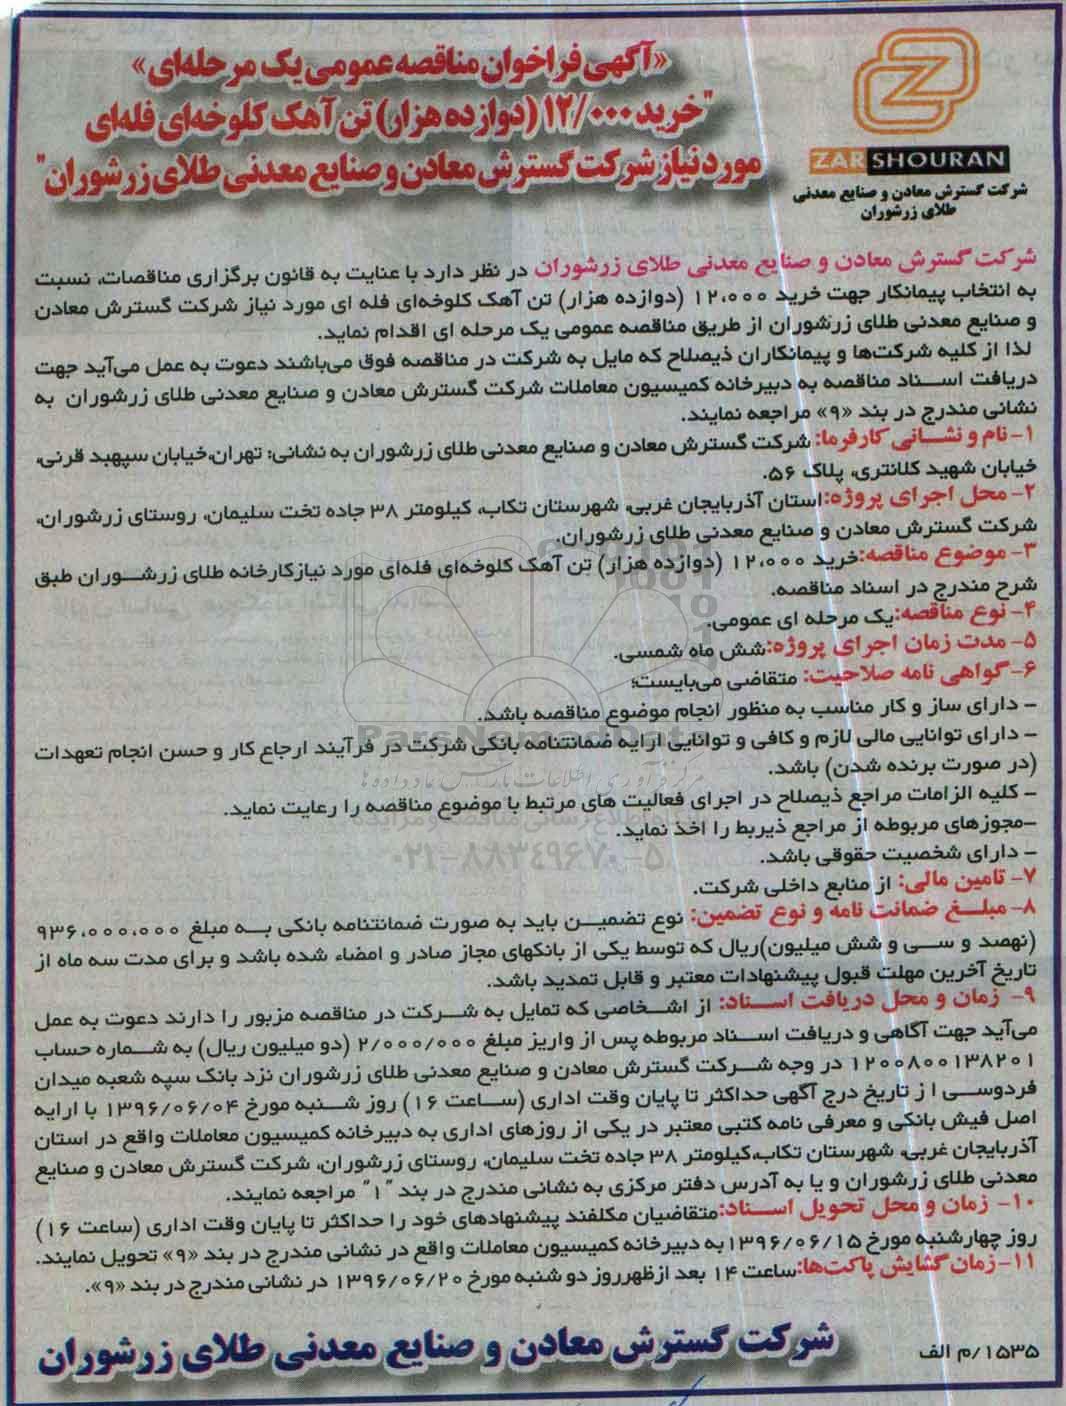 «آگهی فراخوان مناقصه عمومی یک مرحله‌ای»
"خرید ۱۲/۰۰۰ (دوازده هزار) تن آهک کلوخه‌ای فله‌ای
مورد نیاز شرکت گسترش معادن و صنایع معدنی طلای زرشوران"
ZARSHOURAN
شرکت گسترش معادن و صنایع معدنی
طلای زرشوران
شرکت گسترش معادن و صنایع معدنی طلای زرشوران در نظر دارد با عنایت به قانون برگزاری مناقصات، نسبت
به انتخاب پیمانکار جهت خرید ۱۲،۰۰۰ (دوازده هزار) تن آهک کلوخه‌ای فله ای مورد نیاز شرکت گسترش معادن
و صنایع معدنی طلای زرشوران از طریق مناقصه عمومی یک مرحله ای اقدام نماید.
لذا از کلیه شرکت‌ها و پیمانکاران ذیصلاح که مایل به شرکت در مناقصه فوق می‌باشند دعوت به عمل می‌آید جهت
دریافت اسناد مناقصه به دبیرخانه کمیسیون معاملات شرکت گسترش معادن و صنایع معدنی طلای زرشوران به
نشانی مندرج در بند «۹» مراجعه نمایند.
۱- نام و نشانی کارفرما: شرکت گسترش معادن و صنایع معدنی طلای زرشوران به نشانی: تهران،خیابان سپهبد قرنی،
خیابان شهید کلانتری، پلاک ۵۶.
۲- محل اجرای پروژه:استان آذربایجان غربی، شهرستان تکاب، کیلومتر ۳۸ جاده تخت سلیمان، روستای زرشوران،
شرکت گسترش معادن و صنایع معدنی طلای زرشوران.
۳- موضوع مناقصه:خرید ۱۲،۰۰۰ (دوازده هزار) تن آهک کلوخه‌ای فله‌ای مورد نیازکارخانه طلای زرشوران طبق
شرح مندرج در اسناد مناقصه.
۴- نوع مناقصه:یک مرحله ای عمومی.
۵- مدت زمان اجرای پروژه:شش ماه شمسی.
۶- گواهی نامه صلاحیت: متقاضی می‌بایست؛
- دارای ساز و کار مناسب به منظور انجام موضوع مناقصه باشد.
- دارای توانایی مالی لازم و کافی و توانایی ارایه ضمانتنامه بانکی شرکت در فرآیند ارجاع کار و حسن انجام تعهدات
(در صورت برنده شدن) باشد.
- کلیه الزامات مراجع ذیصلاح در اجرای فعالیت های مرتبط با موضوع مناقصه را رعایت نماید.
-مجوزهای مربوطه از مراجع ذیربط را اخذ نماید.
- دارای شخصیت حقوقی باشد.
ParsNamadData
مرکز فرآوری اطلاعات پارس نماد داده ها
پایگاه اطلاع رسانی مناقصه و مزایده
۰۲۱-۸۸۳۴۹۶۷۰-۵
۷- تامین مالی: از منابع داخلی شرکت.
۸- مبلغ ضمانت نامه و نوع تضمین: نوع تضمین باید به صورت ضمانتنامه بانکی به مبلغ ۹۳۶،۰۰۰،۰۰۰
(نهصد و سی و شش میلیون)ریال که توسط یکی از بانکهای مجاز صادر و امضاء شده باشد و برای مدت سه ماه از
تاریخ آخرین مهلت قبول پیشنهادات معتبر و قابل تمدید باشد.
۹- زمان و محل دریافت اسناد: از اشخاصی که تمایل به شرکت در مناقصه مزبور را دارند دعوت به عمل
می‌آید جهت آگاهی و دریافت اسناد مربوطه پس از واریز مبلغ ۲/۰۰۰/۰۰۰ (دو میلیون ریال) به شماره حساب
۱۲۰۰۸۰۰۱۳۸۲۰۱ در وجه شرکت گسترش معادن و صنایع معدنی طلای زرشوران نزد بانک سپه شعبه میدان
فردوسی ا ز تاریخ درج آگهی حداکثر تا پایان وقت اداری (ساعت ۱۶) روز شنبه مورخ ۱۳۹۶/۰۶/۰۴ با ارایه
اصل فیش بانکی و معرفی نامه کتبی معتبر در یکی از روزهای اداری به دبیرخانه کمیسیون معاملات واقع در استان
آذربایجان غربی، شهرستان تکاب،کیلومتر ۳۸ جاده تخت سلیمان، روستای زرشوران، شرکت گسترش معادن و صنایع
معدنی طلای زرشوران و یا به آدرس دفتر مرکزی به نشانی مندرج در بند "۱" مراجعه نمایند.
۱۰- زمان و محل تحویل اسناد:متقاضیان مکلفند پیشنهادهای خود را حداکثر تا پایان وقت اداری (ساعت ۱۶)
روز چهارشنبه مورخ ۱۳۹۶/۰۶/۱۵به دبیرخانه کمیسیون معاملات واقع در نشانی مندرج در بند «۹» تحویل نمایند.
۱۱- زمان گشایش پاکت‌ها:ساعت ۱۴ بعد ازظهرروز دو شنبه مورخ ۱۳۹۶/۰۶/۲۰ در نشانی مندرج در بند «۹».
شرکت گسترش معادن و صنایع معدنی طلای زرشوران
۱۵۳۵/م الف